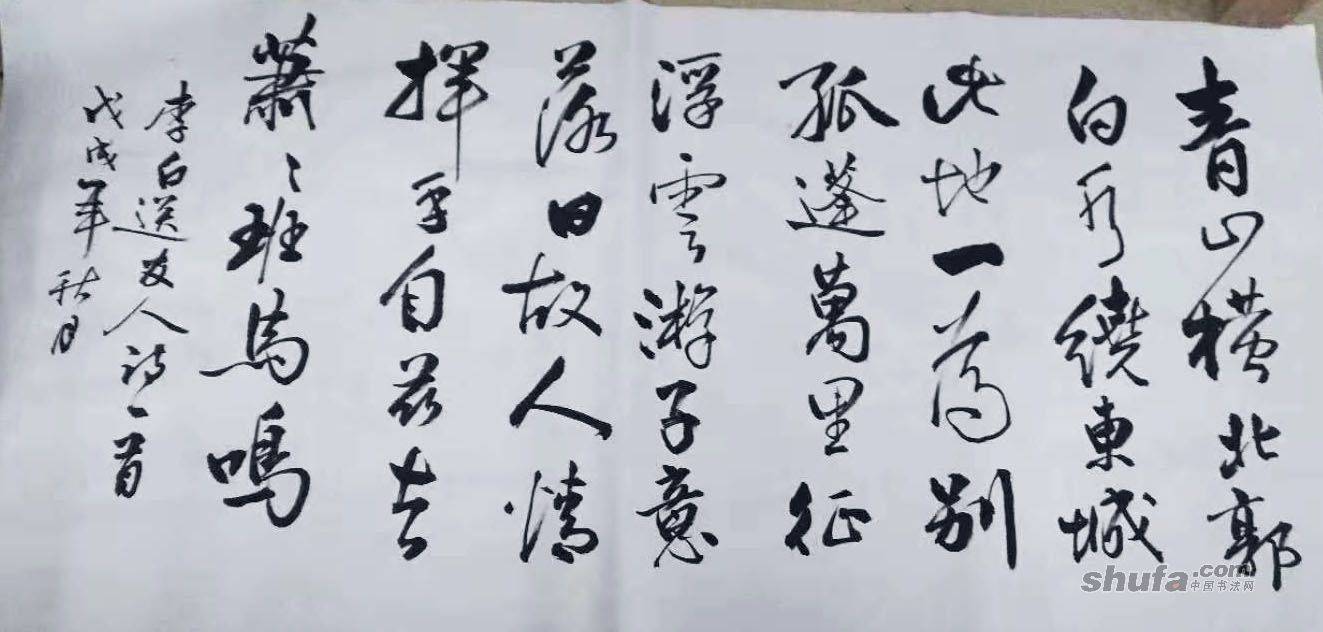 青山横北郭
白水繞東城
此地一為别
孤蓬萬里征
浮雲游子意
落日故人情
揮手自兹去
蕭〻班馬鳴
李白送友人诗一首
戊戌年秋月
shufa.com
中国书法网